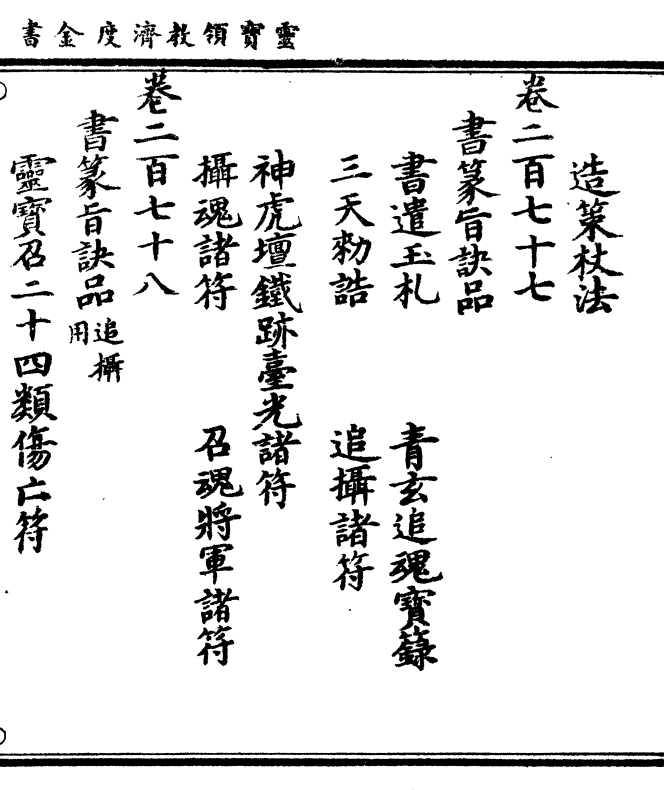 靈寶領教濟度金書
造策杖法
卷二百七十七
書篆旨訣品
書遣玉札　青玄追魂寶籙
三天勑誥　追攝諸符
神虎壇鐵跡臺光諸符
攝魂諸符　召魂將軍諸符
卷二百七十八
書篆旨訣品追攝用
靈寶召二十四類傷亡符